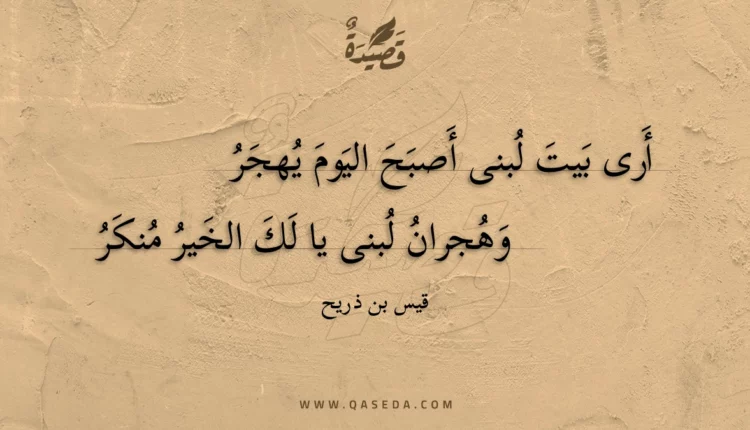 قَصِيدَةٌ
أَرى بَيتَ لُبنى أَصبَحَ اليَومَ يُهجَرُ
وَهُجرانُ لُبنى يا لَكَ الخَيرُ مُنكَرُ
قيس بن ذريح
WWW.QASEDA.COM